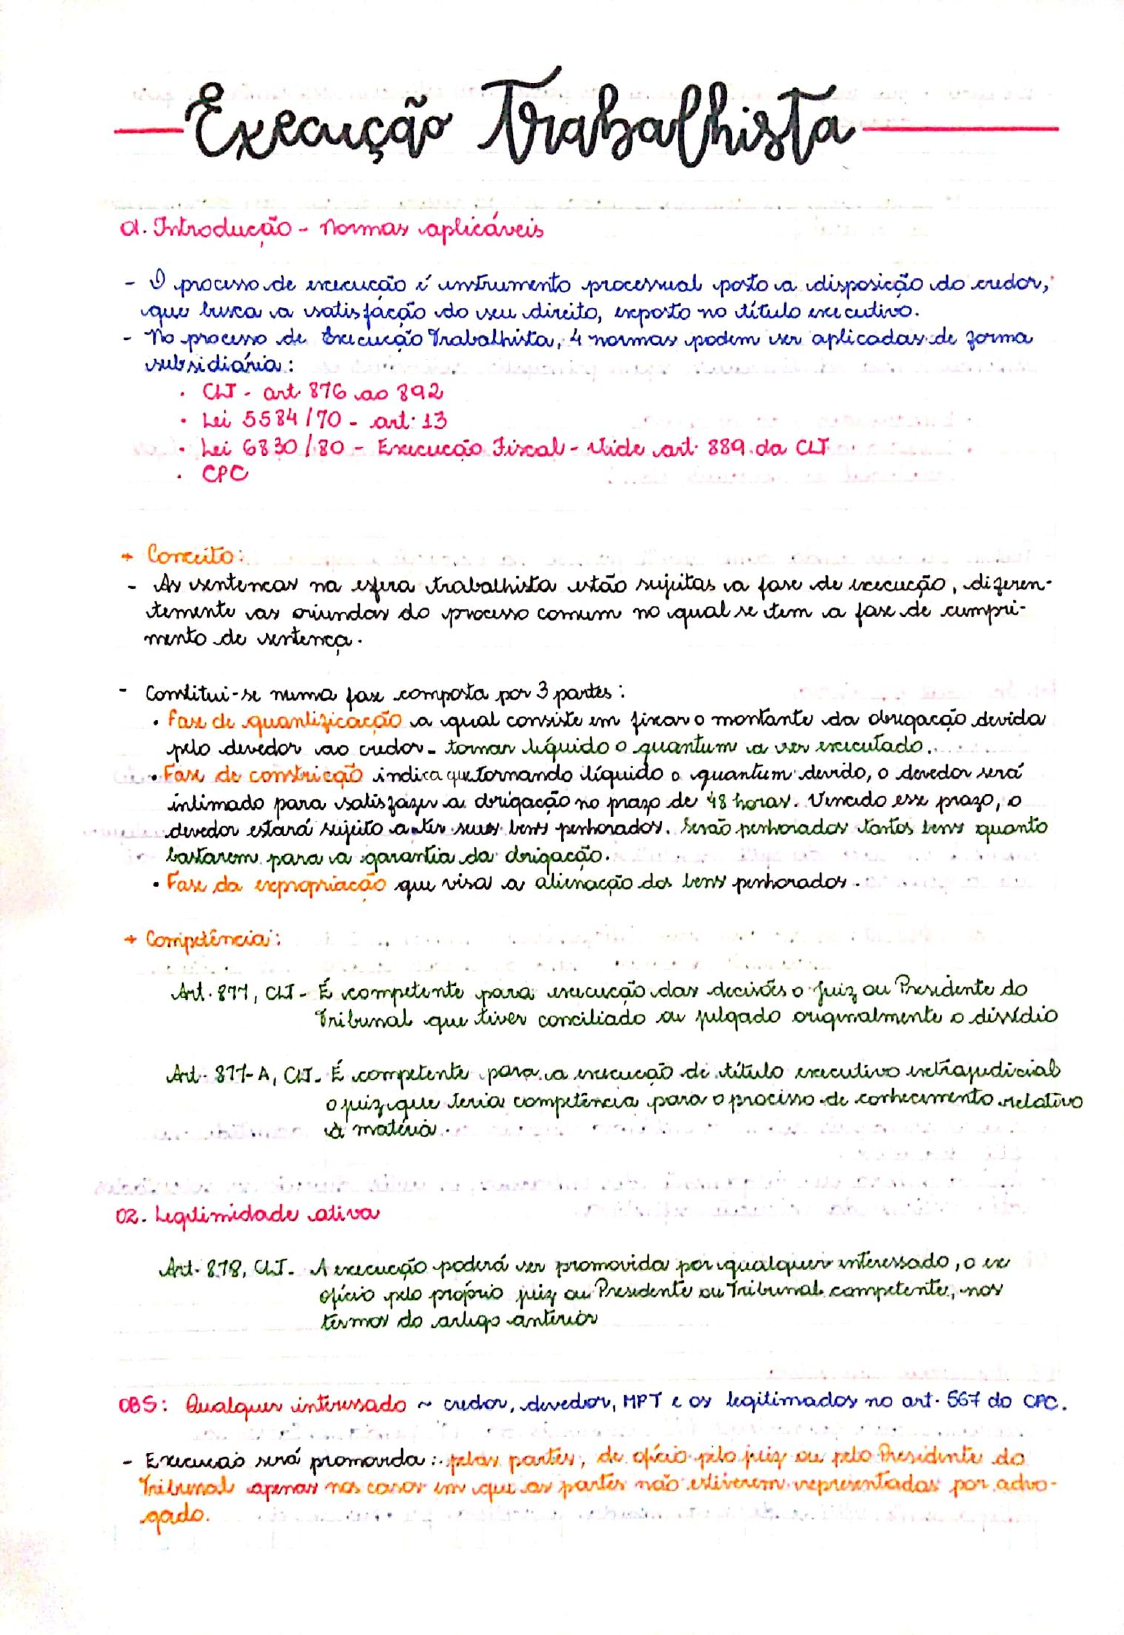 Execução Trabalhista
01. Introdução - Normas aplicáveis
- O processo de execução é instrumento processual posto a disposição do credor,
que busca a satisfação do seu direito, exposto no título executivo.
- No processo de Execução Trabalhista, 4 normas podem ser aplicadas de forma
subsidiária:
• CLT - art. 876 ao 892
• Lei 5584/70 - art. 13
• Lei 6830/80 - Execução Fiscal - Vide art. 889 da CLT
• CPC
→ Conceito:
- As sentenças na esfera trabalhista estão sujeitas a fase de execução, diferen-
temente as oriundas do processo comum no qual se tem a fase de cumpri-
mento de sentença.
- Constitui-se numa fase composta por 3 partes:
• Fase de quantificação a qual consiste em fixar o montante da obrigação devida
pelo devedor ao credor - tornar líquido o quantum a ser executado.
• Fase de constrição indica que tornando líquido o quantum devido, o devedor será
intimado para satisfazer a obrigação no prazo de 48 horas. Vencido esse prazo, o
devedor estará sujeito a ter seus bens penhorados. Serão penhorados tantos bens quanto
bastarem para a garantia da obrigação.
• Fase da expropriação que visa a alienação dos bens penhorados.
→ Competência:
Art. 877, CLT - É competente para execução das decisões o Juiz ou Presidente do
Tribunal que tiver conciliado ou julgado originalmente o dissídio
Art. 877-A, CLT - É competente para a execução de título executivo extrajudicial
o juiz que teria competência para o processo de conhecimento relativo
à matéria.
02. Legitimidade ativa
Art. 878, CLT - A execução poderá ser promovida por qualquer interessado, o ex
ofício pelo próprio juiz ou Presidente ou Tribunal competente, nos
termos do artigo anterior
OBS: Qualquer interessado ~ credor, devedor, MPT e os legitimados no art. 567 do CPC.
- Execução será promovida: pelas partes, de ofício pelo juiz ou pelo Presidente do
Tribunal apenas nos casos em que as partes não estiverem representadas por advo-
gado.